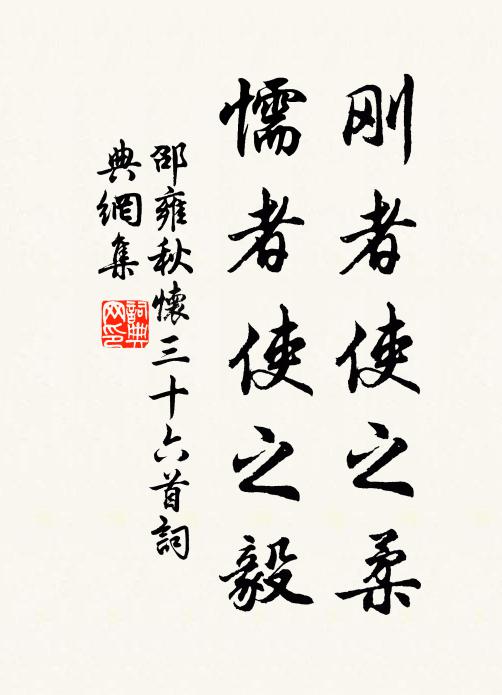 刚者使之柔
懦者使之毅
邵雍秋懷三十六首詞
典網集
詞典
网印